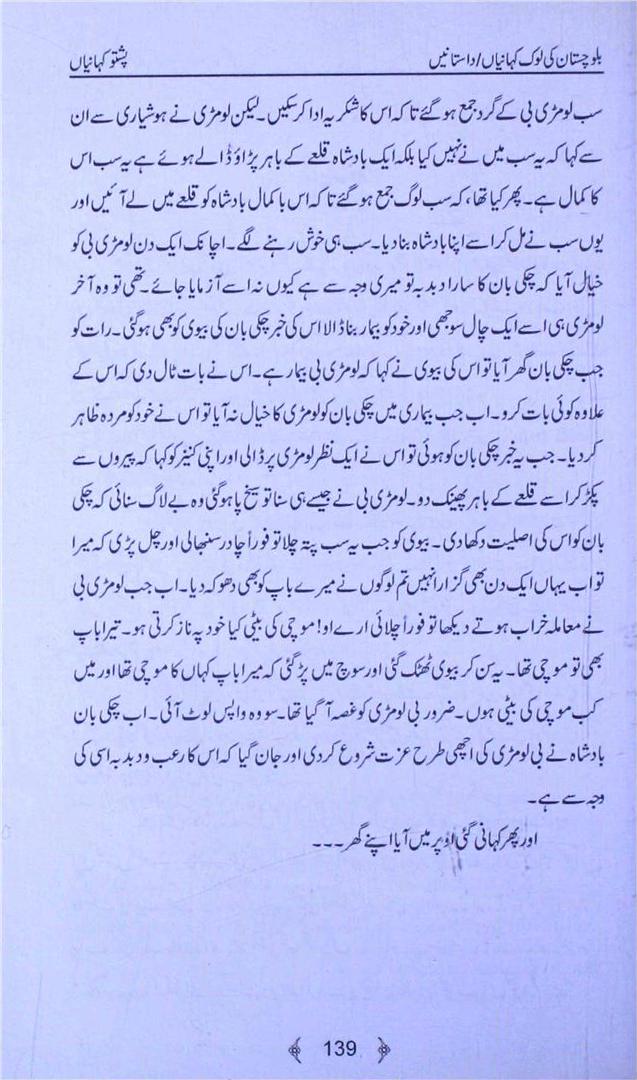 بلوچستان کی لوک کہانیاں/داستانیں
پشتو کہانیاں
سب لومڑی بی کے گرد جمع ہو گئے تاکہ اس کا شکریہ ادا کر سکیں۔ لیکن لومڑی نے ہوشیاری سے ان
سے کہا کہ یہ سب میں نے نہیں کیا بلکہ ایک بادشاہ قلعے کے باہر پڑاؤ ڈالے ہوئے ہے یہ سب اس
کا کمال ہے۔ پھر کیا تھا، کہ سب لوگ جمع ہو گئے تاکہ اس باکمال بادشاہ کو قلعے میں لے آئیں اور
یوں سب نے مل کر اسے اپنا بادشاہ بنا دیا۔ سب ہی خوش رہنے لگے۔ اچانک ایک دن لومڑی بی کو
خیال آیا کہ چکی بان کا سارا دبدبہ تو میری وجہ سے ہے کیوں نہ اسے آزمایا جائے۔ تھی تو وہ آخر
لومڑی ہی اسے ایک چال سوجھی اور خود کو بیمار بنا ڈالا اس کی خبر چکی بان کی بیوی کو بھی ہو گئی۔ رات کو
جب چکی بان گھر آیا تو اس کی بیوی نے کہا کہ لومڑی بی بیمار ہے۔ اس نے بات ٹال دی کہ اس کے
علاوہ کوئی بات کرو۔ اب جب بیماری میں چکی بان کو لومڑی کا خیال نہ آیا تو اس نے خود کو مردہ ظاہر
کر دیا۔ جب یہ خبر چکی بان کو ہوئی تو اس نے ایک نظر لومڑی پر ڈالی اور اپنی کنیز کو کہا کہ پیروں سے
پکڑ کر اسے قلعے کے باہر پھینک دو۔ لومڑی بی نے جیسے ہی سنا تو سیخ پا ہو گئی وہ بے لاگ سنائی کہ چکی
بان کو اس کی اصلیت دکھا دی۔ بیوی کو جب یہ سب پتہ چلا تو فوراً چادر سنبھالی اور چل پڑی کہ میرا
تو اب یہاں ایک دن بھی گزارا نہیں تم لوگوں نے میرے باپ کو بھی دھوکہ دیا۔ اب جب لومڑی بی
نے معاملہ خراب ہوتے دیکھا تو فوراً چلائی ارے او! موچی کی بیٹی کیا خود پہ ناز کرتی ہو۔ تیرا باپ
بھی تو موچی تھا۔ یہ سن کر بیوی ٹھٹک گئی اور سوچ میں پڑ گئی کہ میرا باپ کہاں کا موچی تھا اور میں
کب موچی کی بیٹی ہوں۔ ضرور بی لومڑی کو غصہ آ گیا تھا۔ سو وہ واپس لوٹ آئی۔ اب چکی بان
بادشاہ نے بی لومڑی کی اچھی طرح عزت شروع کر دی اور جان گیا کہ اس کا رعب و دبدبہ اسی کی
وجہ سے ہے۔
اور پھر کہانی گئی اوپر میں آیا اپنے گھر۔۔۔
139